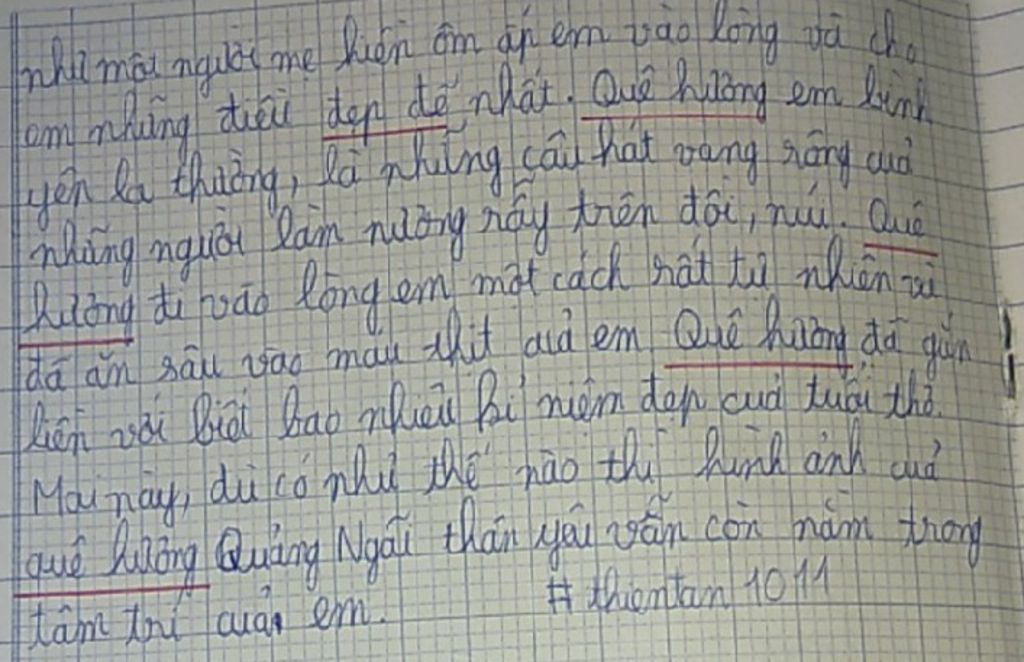 như một người mẹ hiền ôm ấp em vào lòng và cho
em những điều đẹp đẽ nhất. Quê hương em bình
yên lạ thường, là những câu hát vang rộng của
những người làm nương rẫy trên đồi, núi. Quê
hương đi vào lòng em một cách rất tự nhiên và
đã ăn sâu vào máu thịt của em Quê hương đã gắn
liền với biết bao nhiêu kỉ niệm đẹp của tuổi thơ.
Mai này, dù có như thế nào thì hình ảnh của
quê hương Quảng Ngãi thân yêu vẫn còn nằm trong
tâm trí của em. # thientan 1011